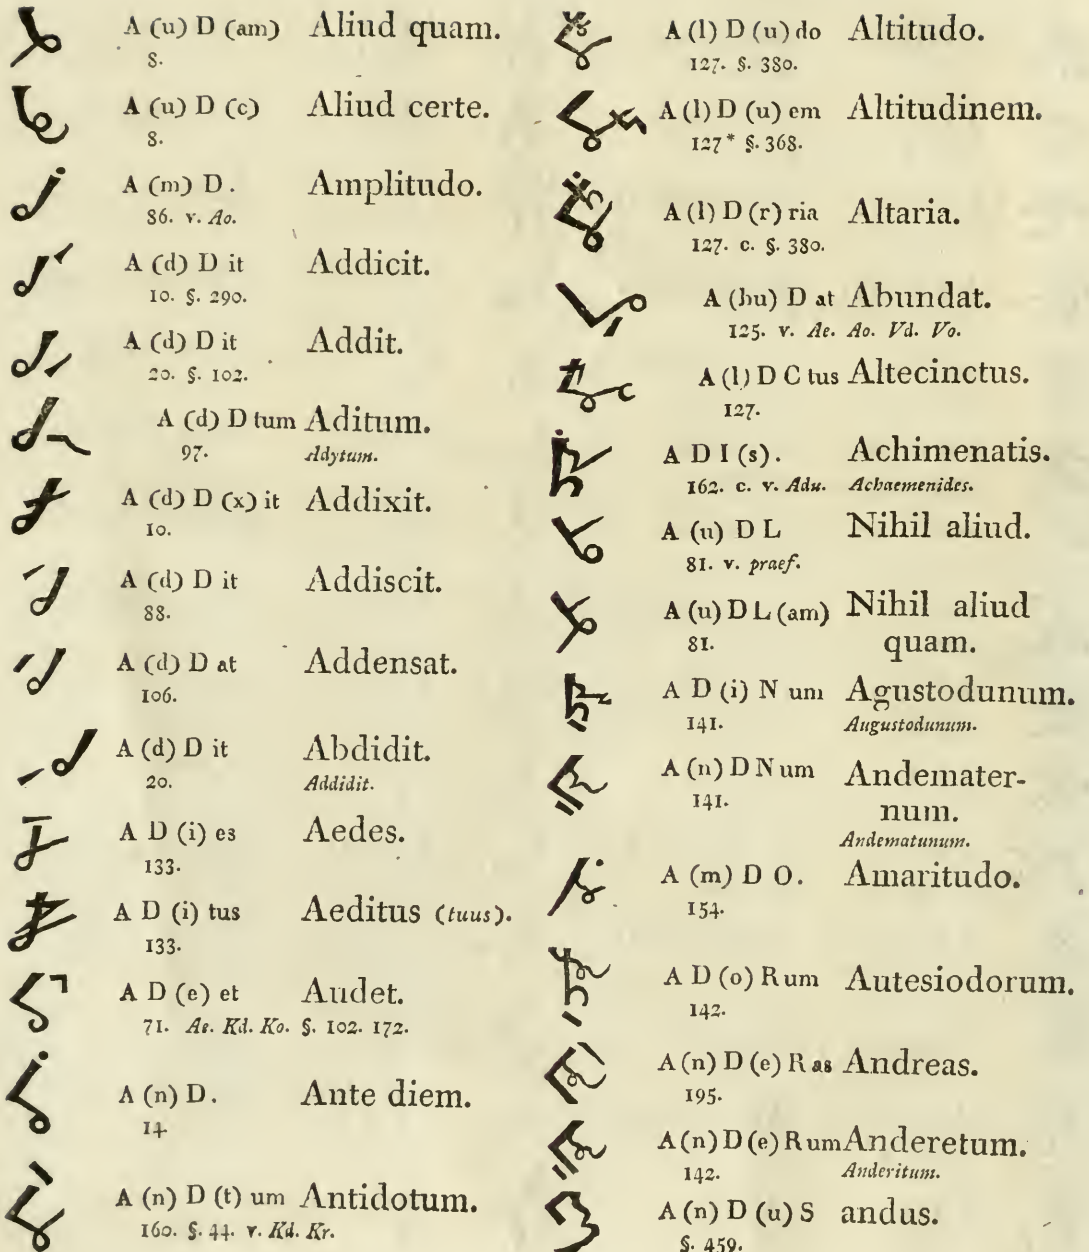 A (u) D (am) Aliud quam.
8.
A (u) D (c) Aliud certe.
8.
A (m) D. Amplitudo.
86. v. Ao.
A (d) D it Addicit.
10. §. 290.
A (d) D it Addit.
20. §. 102.
A (d) D tum Aditum.
97. Adytum.
A (d) D (x) it Addixit.
10.
A (d) D it Addiscit.
88.
A (d) D at Addensat.
106.
A (d) D it Abdidit.
20. Addidit.
A D (i) es Aedes.
133.
A D (i) tus Aeditus (tuus).
133.
A D (e) et Audet.
71. Ae. Kd. Ko. §. 102. 172.
A (n) D. Ante diem.
14
A (n) D (t) um Antidotum.
160. §. 44. v. Kd. Kr.
A (l) D (u) do Altitudo.
127. §. 380.
A (l) D (u) em Altitudinem.
127* §. 368.
A (l) D (r) ria Altaria.
127. c. §. 380.
A (bu) D at Abundat.
125. v. Ae. Ao. Vd. Vo.
A (l) D C tus Altecinctus.
127.
A D I (s). Achimenatis.
162. c. v. Adu. Achaemenides.
A (u) D L Nihil aliud.
81. v. praef.
A (u) D L (am) Nihil aliud
81. quam.
A D (i) N um Agustodunum.
141. Augustodunum.
A (n) D N um Andemater-
141. num.
Andematunum.
A (m) D O. Amaritudo.
154.
A D (o) R um Autesiodorum.
142.
A (n) D (e) R as Andreas.
195.
A (n) D (e) R um Anderetum.
142. Anderitum.
A (n) D (u) S andus.
§. 459.